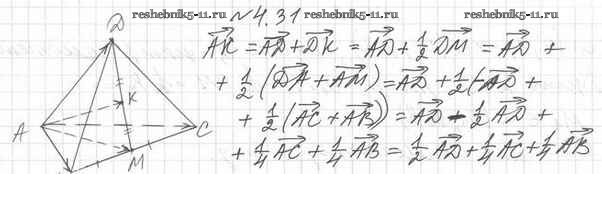 reshebnik5-11.ru №4.31 reshebnik5-11.ru
D
AK = AD + DK = AD + 1/2 DM = AD +
+ 1/2 (DA + AM) = AD + 1/2 (-AD +
K
+ 1/2 (AC + AB)) = AD - 1/2 AD +
A
C
+ 1/4 AC + 1/4 AB = 1/2 AD + 1/4 AC + 1/4 AB
M